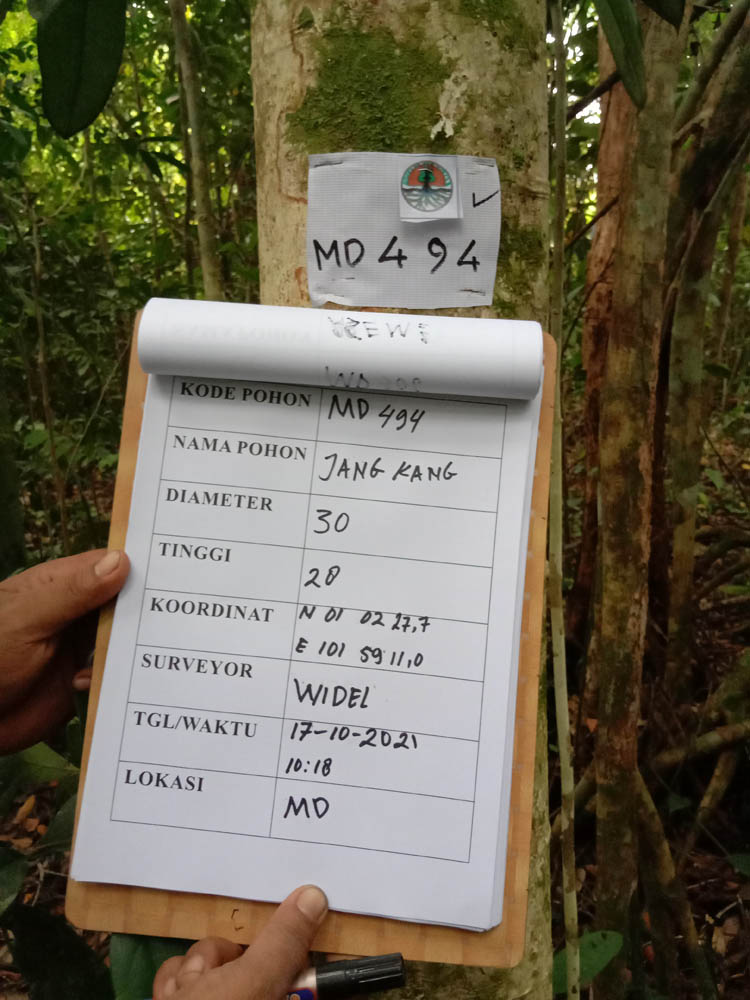 MD 494
KODE POHON MD 494
NAMA POHON JANG KANG
DIAMETER 30
TINGGI 20
KOORDINAT N 01 02 27,7
E 101 59 11,0
SURVEYOR WIDEL
TGL/WAKTU 17-10-2021
10:18
LOKASI MD